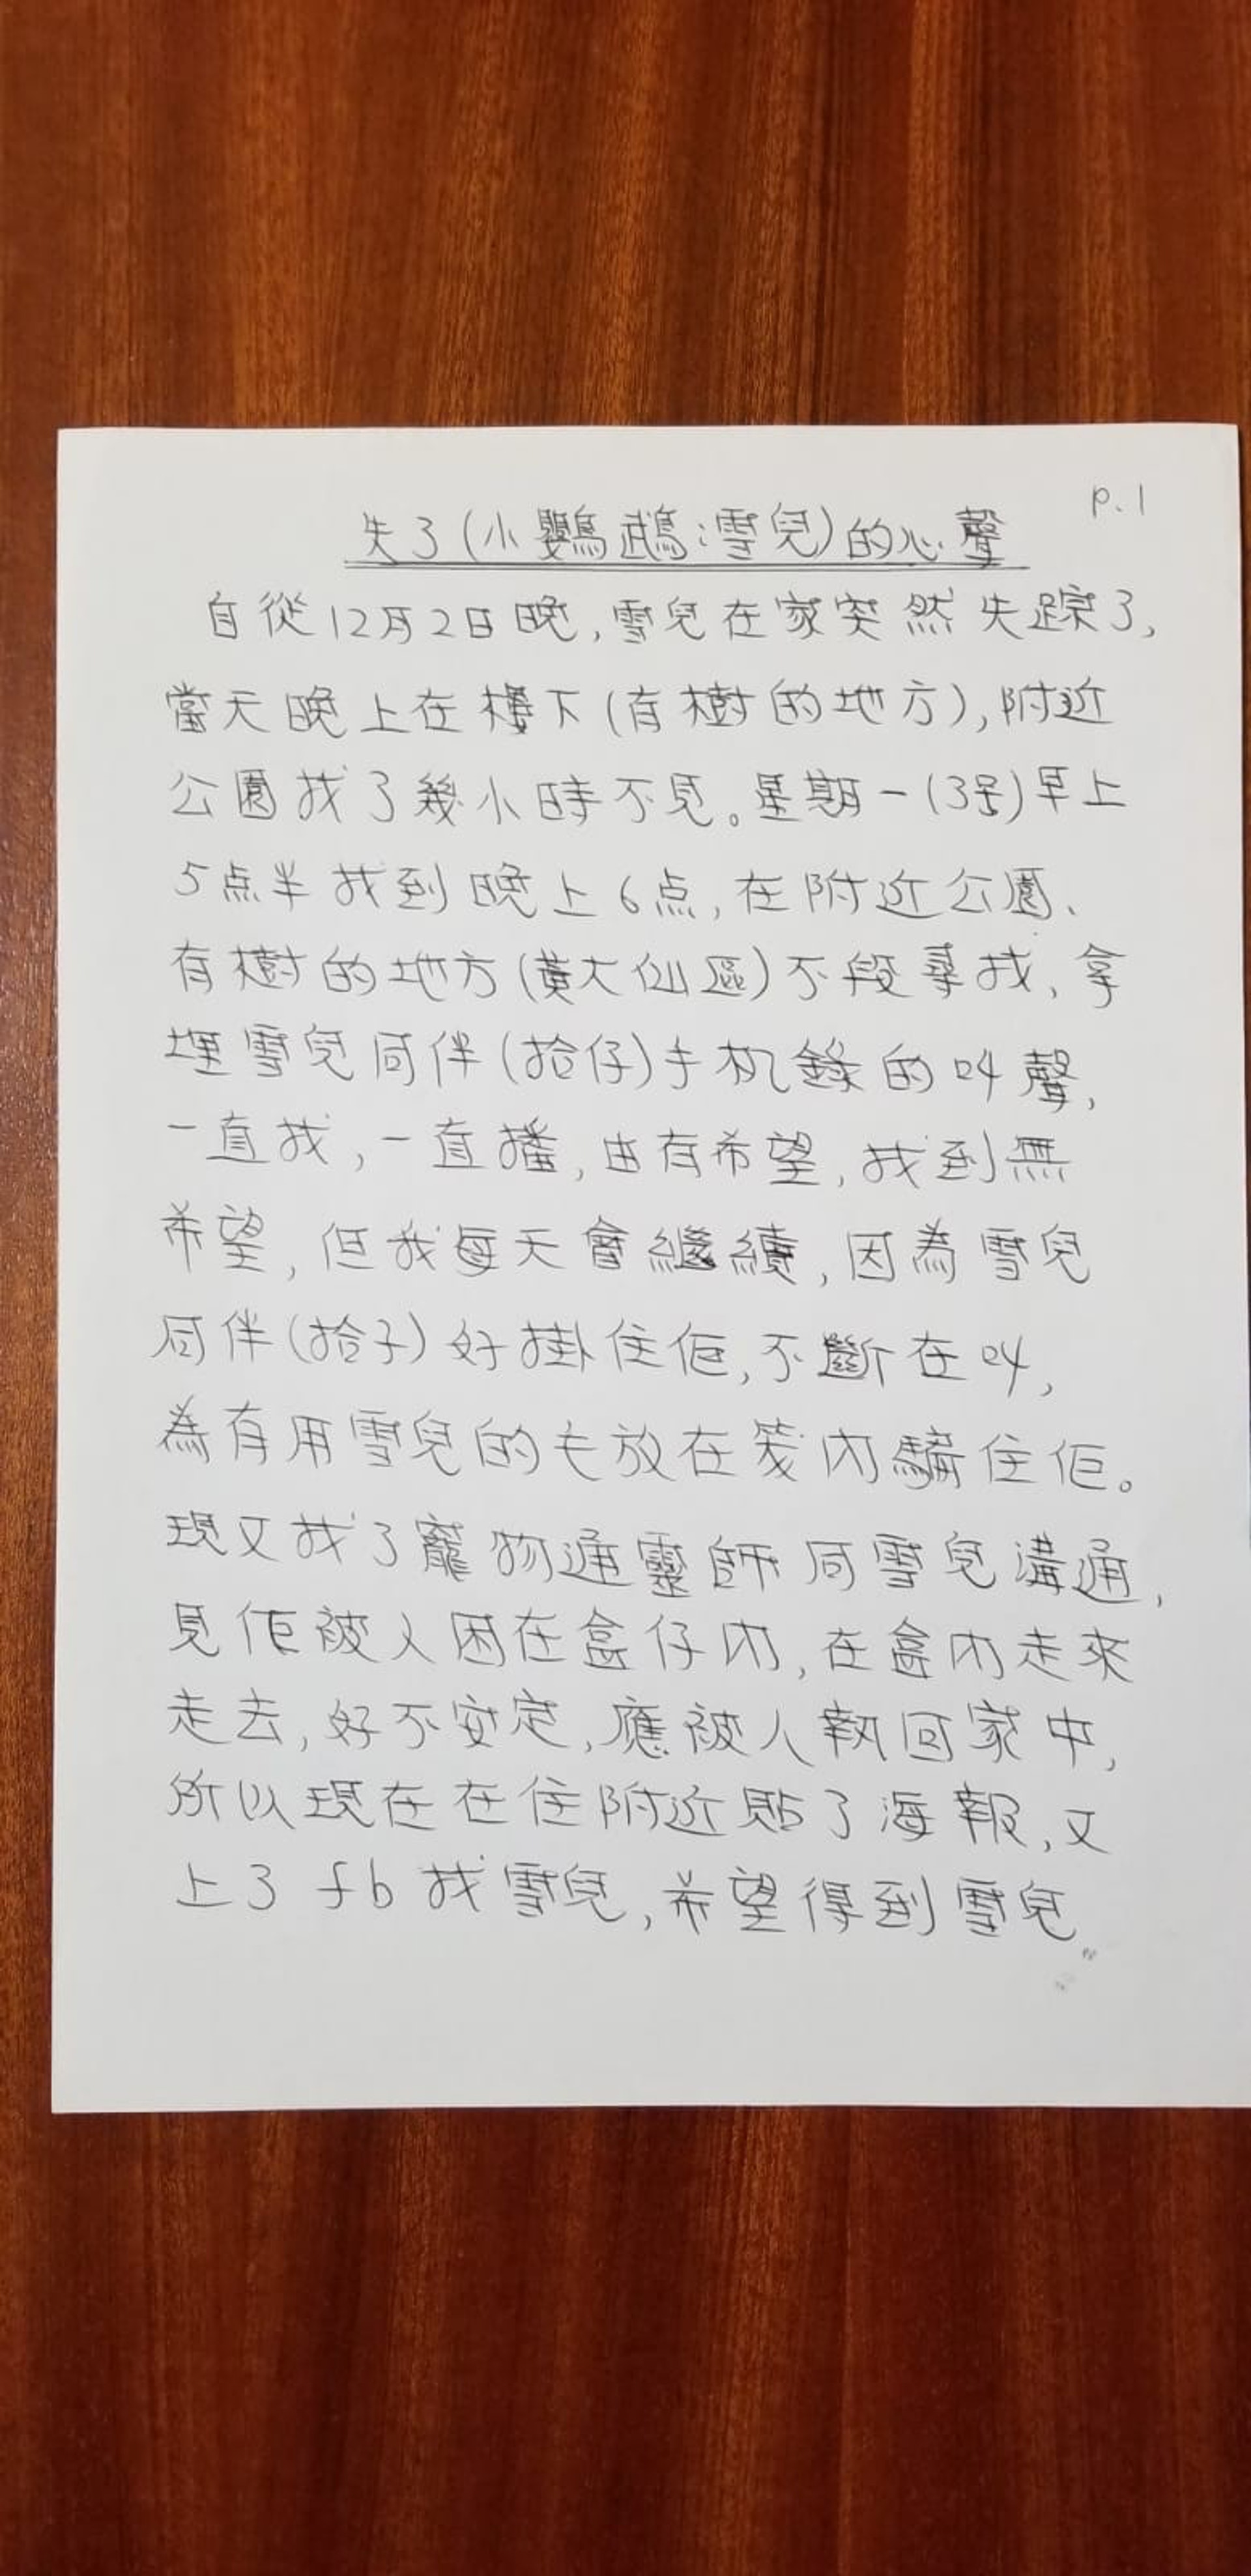 p.1
失了(小鸚鵡:雪兒)的心聲
自從12月2日晚,雪兒在家突然失踪了,
當天晚上在樓下(有樹的地方),附近
公園找了幾小時不見。星期一(3号)早上
5点半找到晚上6点,在附近公園、
有樹的地方(黃大仙區)不段尋找、拿
埋雪兒同伴(拾仔)手机錄的叫聲,
一直找,一直播,由有希望,找到無
希望,但我每天會繼續,因為雪兒
同伴(拾子)好掛住佢,不斷在叫,
為有用雪兒的毛放在笼內騙住佢。
現又找了寵物通靈師同雪兒溝通,
見佢被人困在盒仔內,在盒內走來
走去,好不安定,應被人執回家中,
所以現在在住附近貼了海報,又
上了fb找雪兒,希望得到雪兒